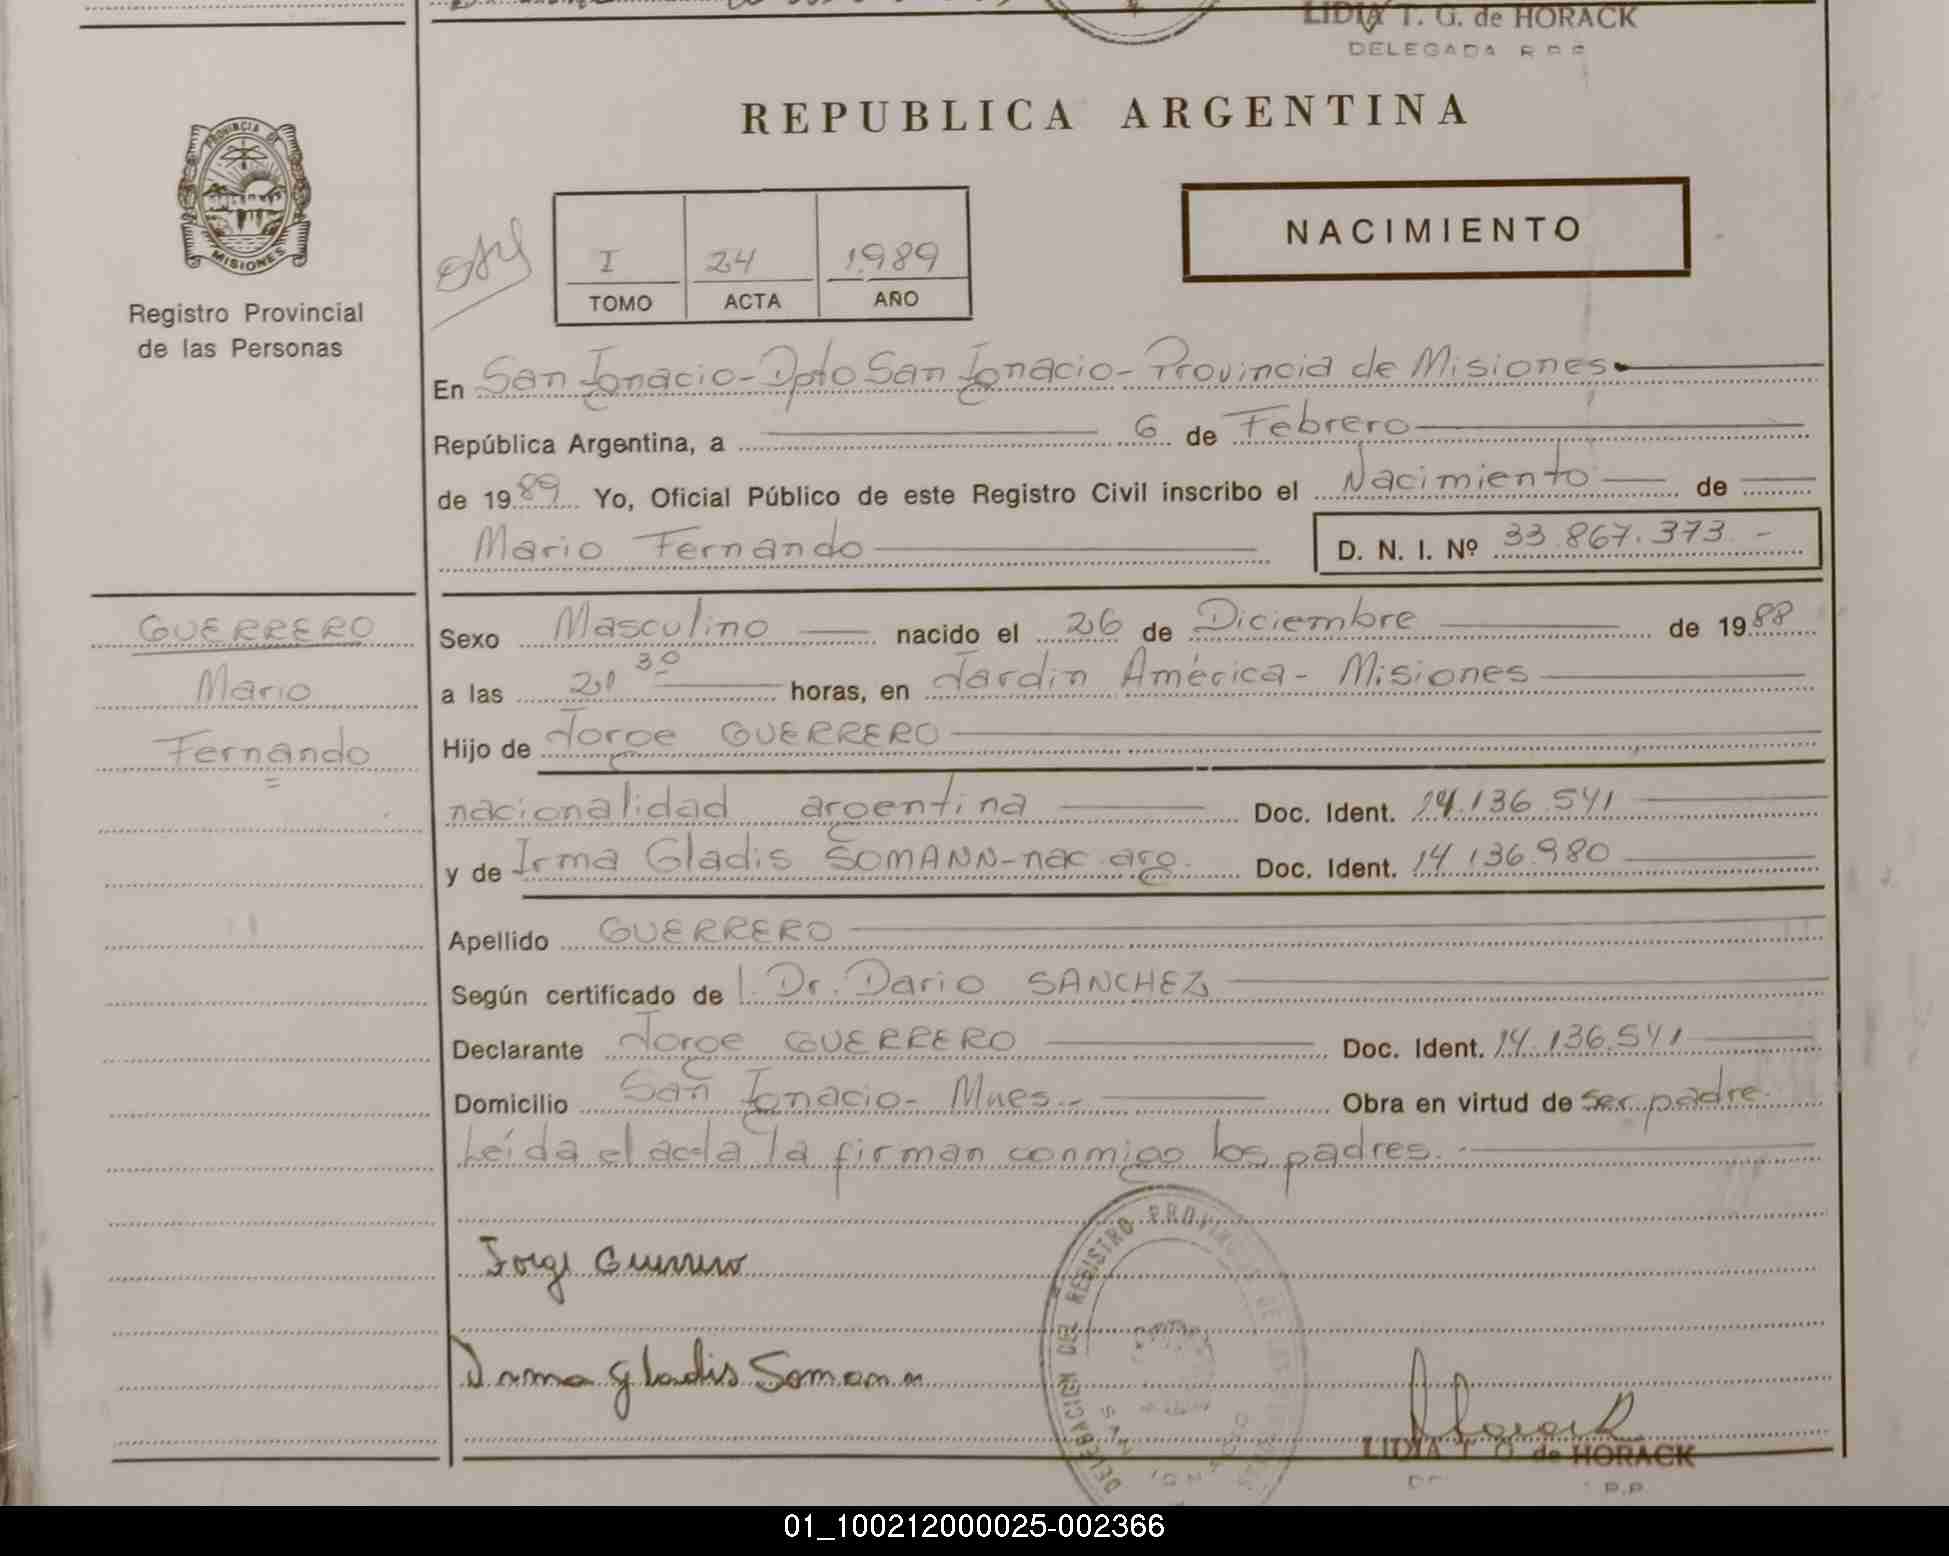 LIDIA T. G. de HORACK
DELEGADA R P P
REPUBLICA ARGENTINA
PROVINCIA DE
MISIONES
Registro Provincial
de las Personas
NACIMIENTO
I 24 1989
TOMO ACTA AÑO
En San Ignacio - Dpto San Ignacio - Provincia de Misiones
República Argentina, a 6 de Febrero
de 1989 Yo, Oficial Público de este Registro Civil inscribo el Nacimiento de
Mario Fernando D. N. I. Nº 33.867.373.-
GUERRERO
Mario
Fernando
Sexo Masculino nacido el 26 de Diciembre de 1988
a las 21 30 horas, en Jardin América - Misiones
Hijo de Jorge GUERRERO
nacionalidad argentina Doc. Ident. 14.136.541
y de Irma Gladis SOMANN - nac. arg. Doc. Ident. 14.136.980
Apellido GUERRERO
Según certificado de Dr. Dario SANCHEZ
Declarante Jorge GUERRERO Doc. Ident. 14.136.541
Domicilio San Ignacio - Mnes.- Obra en virtud de ser padre.
Leída el acta la firman conmigo los padres.
Jorge Guerrero
Irma Gladis Somann
DELEGACION DEL REGISTRO PROVINCIAL DE LAS
SAN IGNACIO
LIDIA T. G. de HORACK
01_100212000025-002366